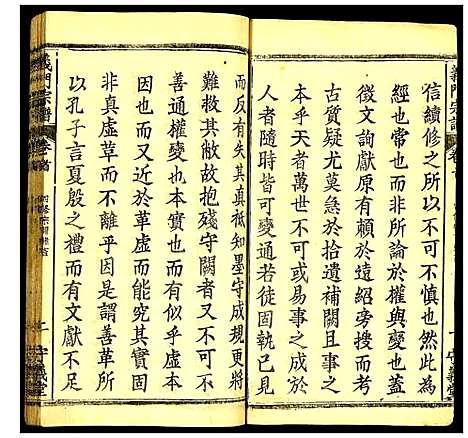 義門宗譜
卷首
信續修之所以不可不慎也然此為
經也常也而非所論於權與變也蓋
徵文詢獻原有頗於遠紹旁搜而考
古質疑尤莫急於拾遺補闕且事之
本乎天者萬世不可易而事之因乎
人者隨時皆可通若徒固執己見
而反有失其真袛知墨守成規更將
難救其敝故抱殘守闕者又不可不
善通權變也本真也而有似乎虛
因也而又近於革虛而能究其實固
非真虛革而不離乎因是謂善革所
以孔子言夏殷之禮而有文獻不足
義門宗譜
卷首
二
守義堂